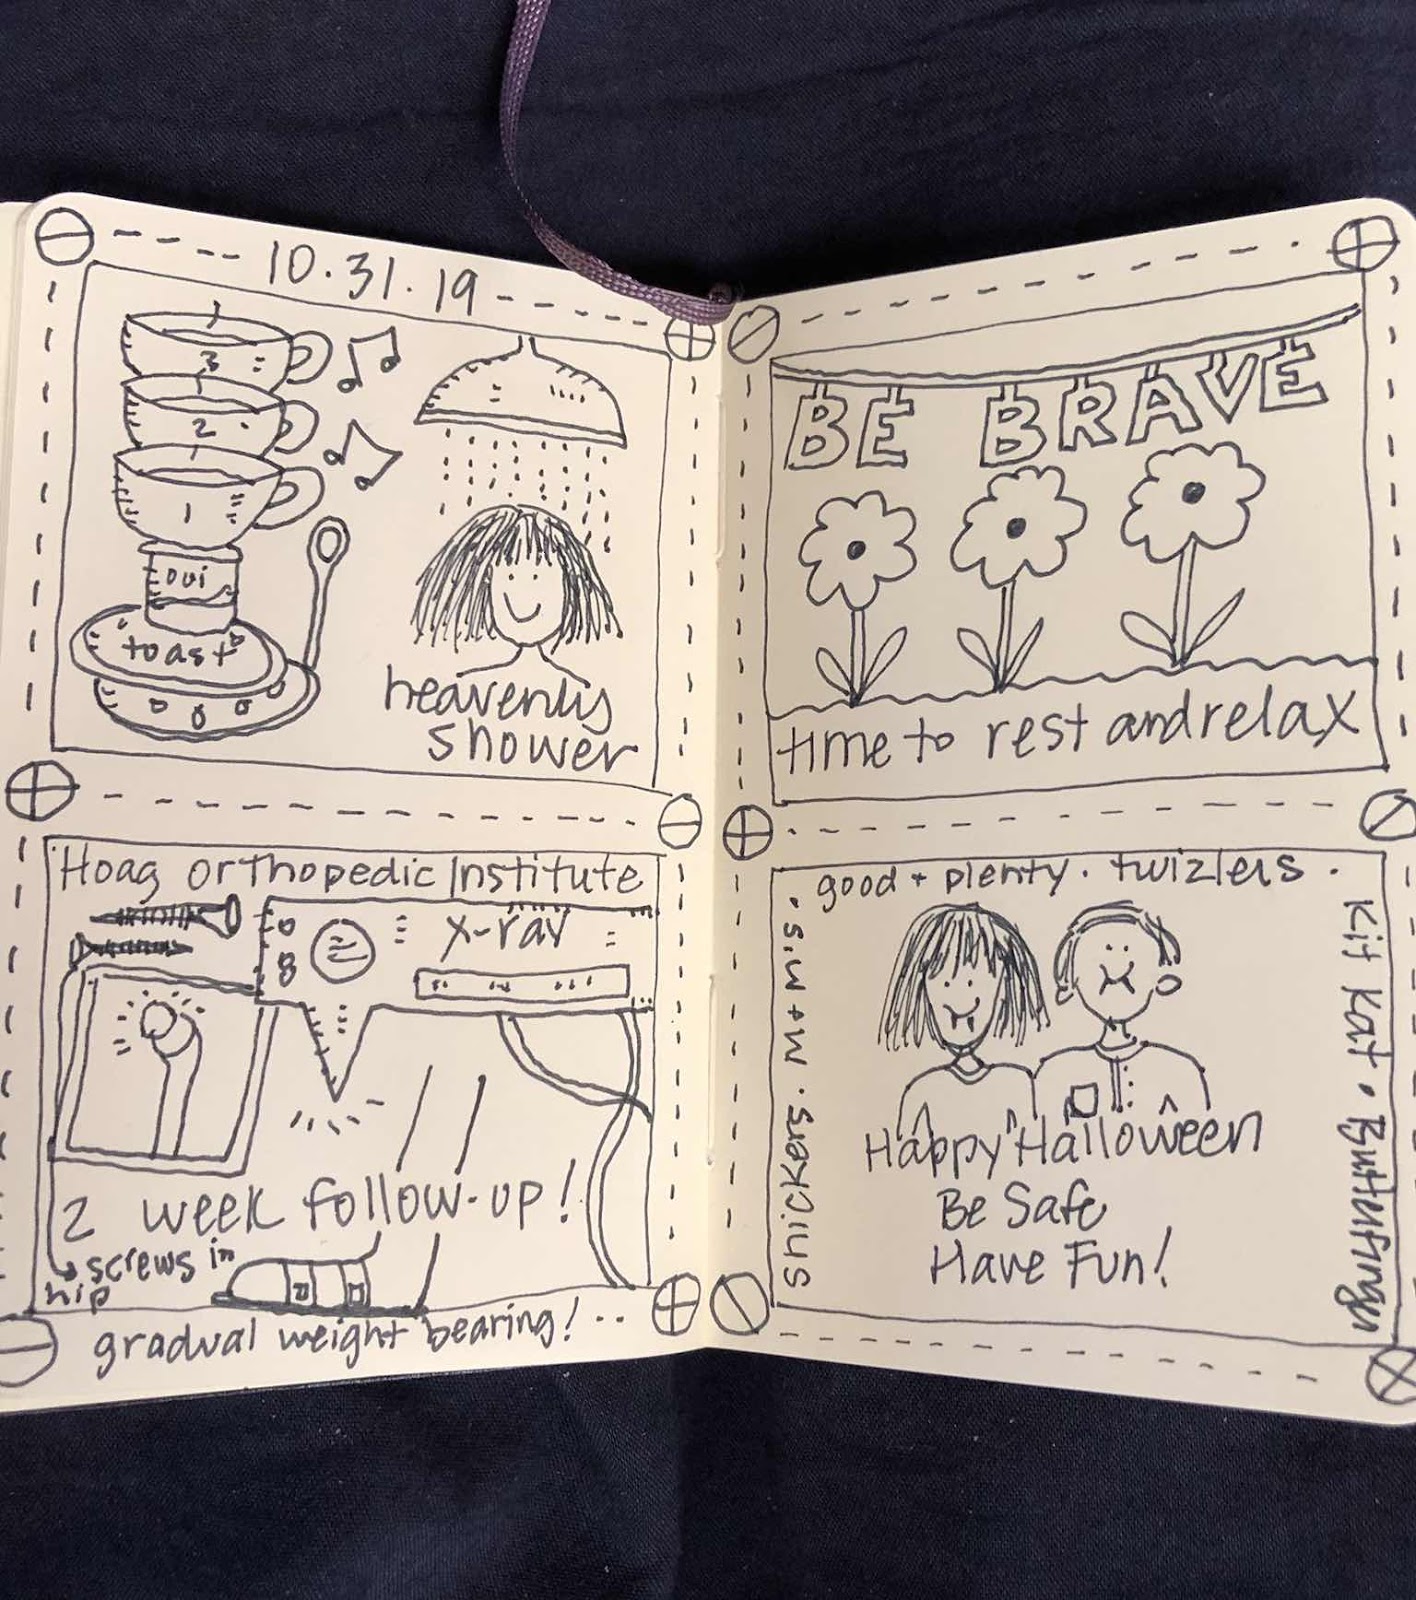 10.31.19
3
2
1
oui
toast
heavenly
shower
BE BRAVE
time to rest and relax
Hoag Orthopedic Institute
x-ray
2 week follow-up!
screws in
hip
gradual weight bearing!
good + plenty. twizlers.
snickers. M+M's.
Kit Kat. Butterfinger
Happy Halloween
Be Safe
Have Fun!